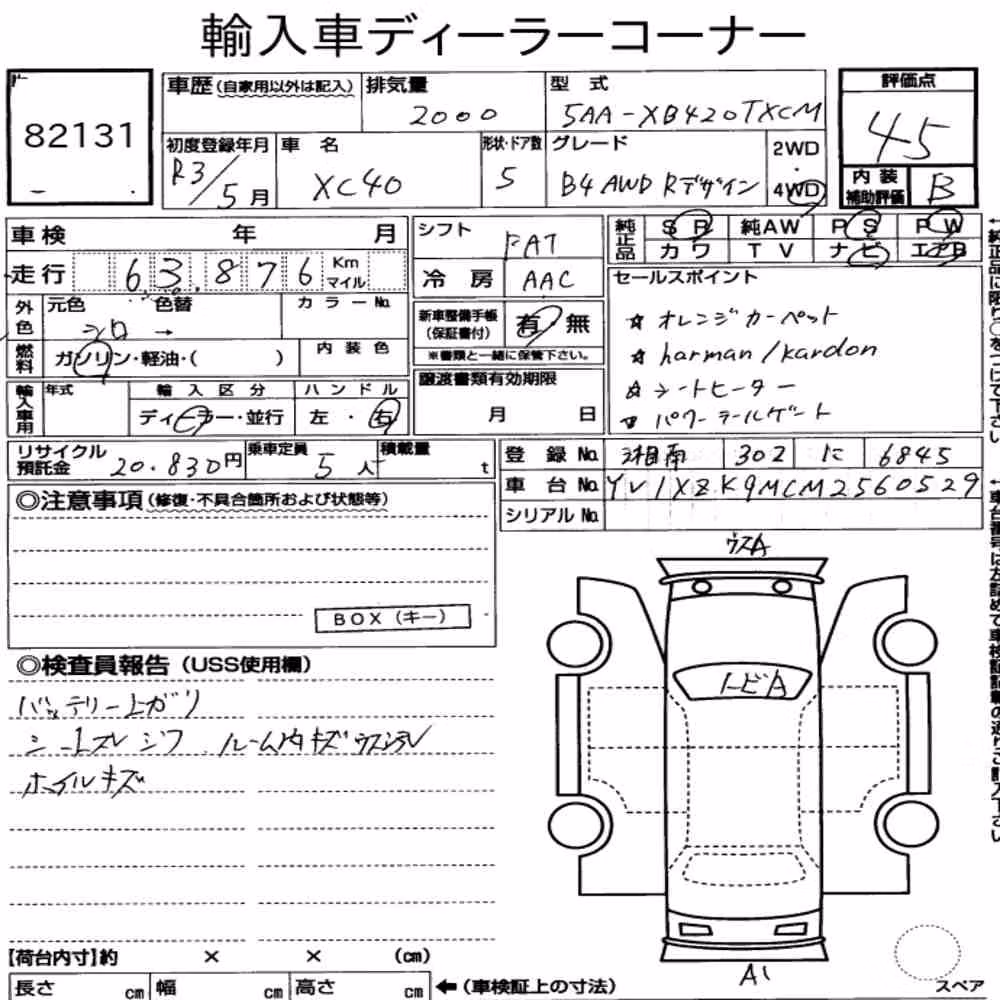 輸入車ディーラーコーナー
82131
車歴(自家用以外は記入) 排気量 2000 型式 5AA-XB420TXCM 評価点 45
初度登録年月 R3/5月 車名 XC40 形状・ドア数 5 グレード B4 AWD Rデザイン 2WD・4WD 内装補助評価 B
車検 年 月
走行 63,876 Km マイル
外色 元色 シロ → 色替 カラーNo.
燃料 ガソリン・軽油・( ) 内装色
輸入車用 年式 輸入区分 ディーラー・並行 ハンドル 左・右
シフト FAT
冷房 AAC
新車整備手帳(保証書付) 有・無
※書類と一緒に保管下さい。
譲渡書類有効期限
月 日
純正品 SR 純AW PS PW
カワ TV ナビ エアB
セールスポイント
☆オレンジカーペット
☆harman/kardon
☆シートヒーター
☆パワーテールゲート
←純正品に限り○をつけて下さい
リサイクル預託金 20.830円 乗車定員 5人 積載量 t
登録No. 湘南 302 に 6845
車台No. YV1XZK9MCM2560529
シリアルNo.
◎注意事項(修復・不具合箇所および状態等)
BOX(キー)
◎検査員報告(USS使用欄)
バッテリー上ガリ
シートスレ シワ ルーム内キズ
ホイルキズ
ウスA
トビA
A1
【荷台内寸】約 × × (cm)
長さ cm 幅 cm 高さ cm ←(車検証上の寸法)
スペア